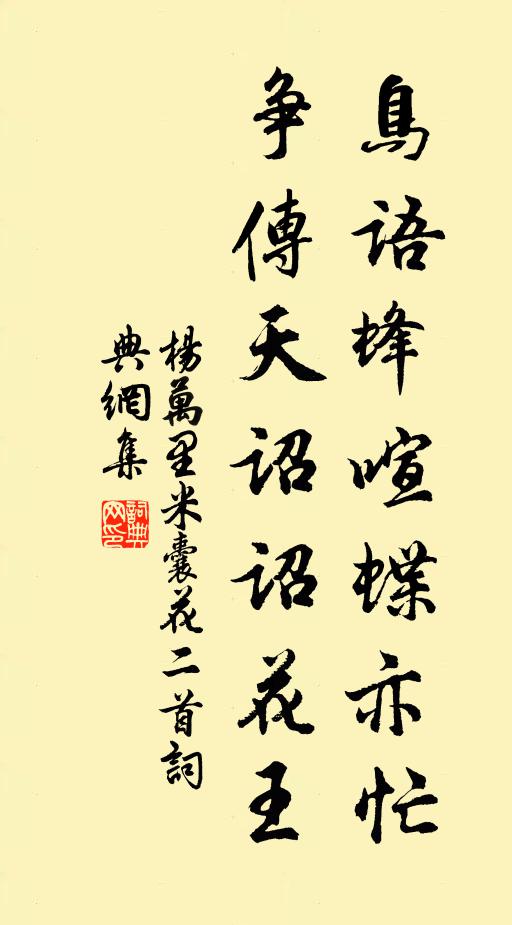 鳥語蜂喧蝶亦忙
争傳天詔詔花王
楊萬里米囊花二首詞
典網集
詞典
网印